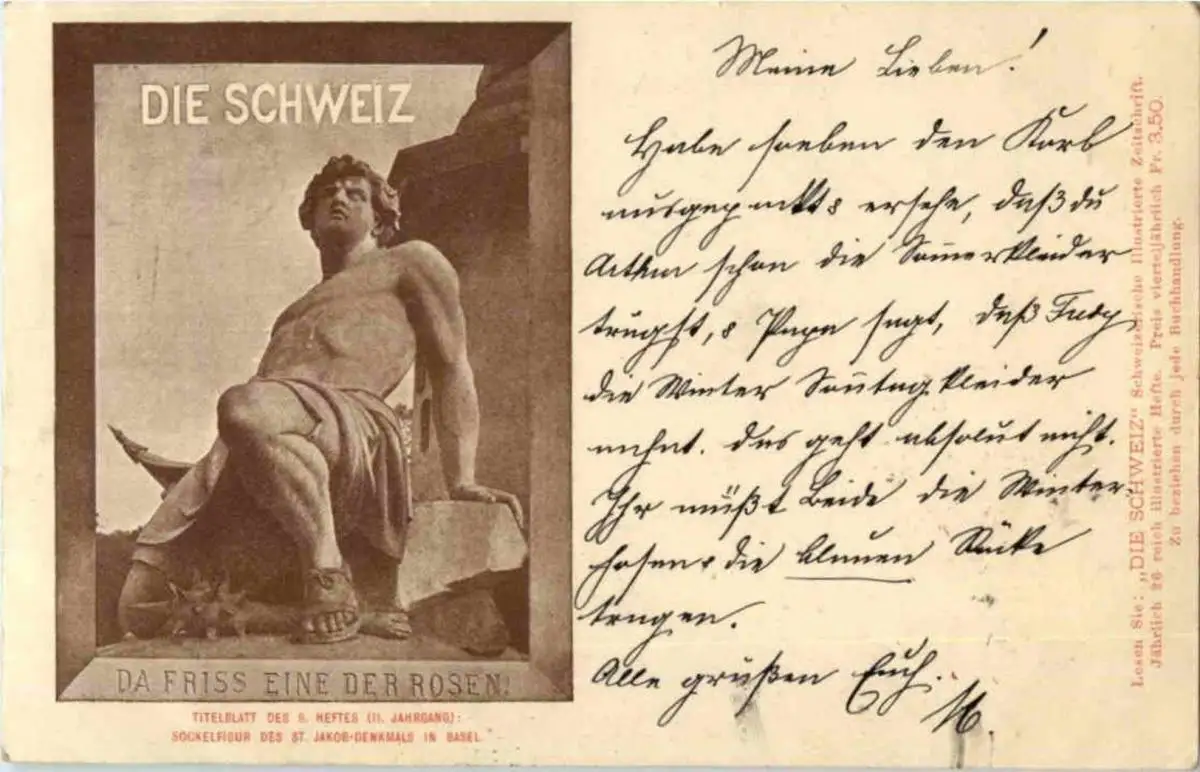 DIE SCHWEIZ
DA FRISS EINE DER ROSEN!
TITELBLATT DES 8. HEFTES (II. JAHRGANG):
SOCKELFIGUR DES ST. JAKOB-DENKMALS IN BASEL
Meine Lieben!
Habe soeben den Korb
ausgepackt & ersehe, daß du
Arthur schon die Sommerkleider
trugst, & Papa sagt, daß Fredy
die Winter Sonntagkleider
nehmt. Das geht absolut nicht.
Ihr müßt Beide die Winter
hosen & die blauen Röcke
tragen.
Alle grüßen Euch.
M.
Lesen Sie: „DIE SCHWEIZ“ Schweizerische Illustrierte Zeitschrift.
Jährlich 26 reich illustrierte Hefte. Preis vierteljährlich Fr. 3.50.
Zu beziehen durch jede Buchhandlung.